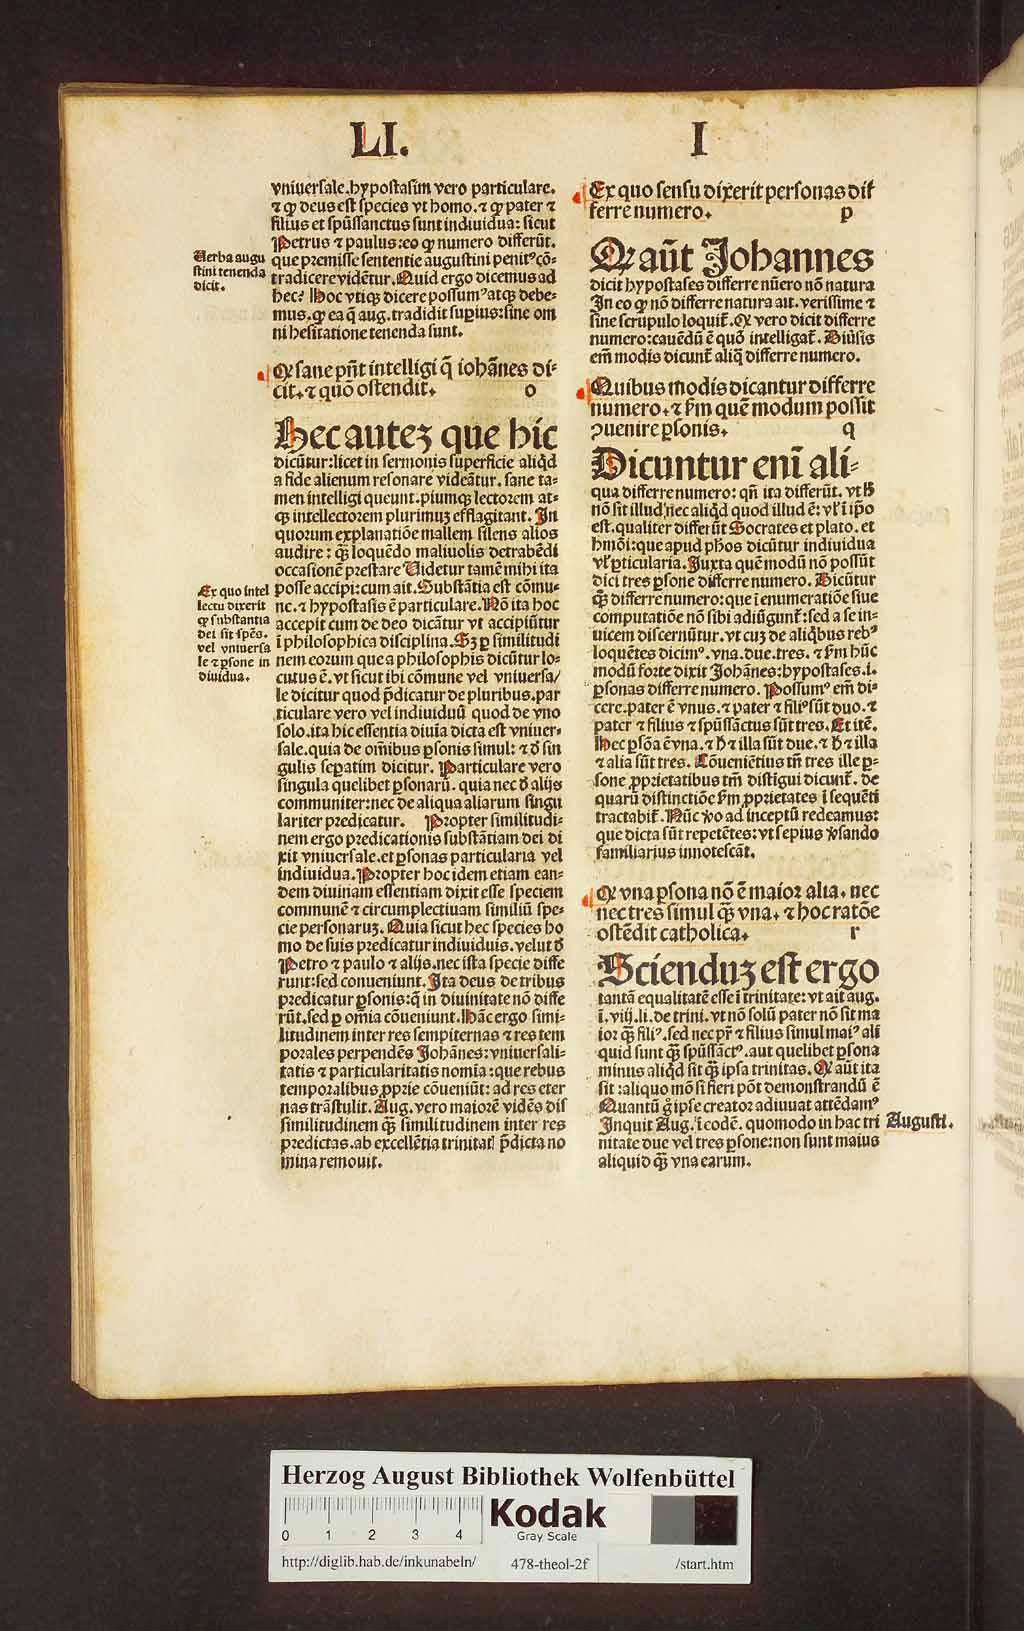 LI. I
vniuersale.hypostasim vero particulare.
⁊ ꝙ deus est species vt homo.⁊ ꝙ pater ⁊
filius et spūssanctus sunt indiuidua: sicut
Petrus ⁊ paulus:eo ꝙ numero differūt.
que premisse sententie augustini penitꝰ cō-
tradicere vidētur. Quid ergo dicemus ad
hec? Hoc vtiqꝫ dicere possumꝰ atqꝫ debe-
mus.ꝙ ea q̄ aug.tradidit supius:sine om
ni hesitatione tenenda sunt.
Uerba augu
stini tenenda
dicit.
Qꝛ sane pñt intelligi q̄ iohānes di-
cit.⁊ quō ostendit. o
Hec autez que hic
dicūtur:licet in sermonis superficie aliqd
a fide alienum resonare videātur. sane ta-
men intelligi queunt.piumqꝫ lectorem at-
qꝫ intellectorem plurimuz efflagitant. In
quorum explanatiōe mallem silens alios
audire: q̄ꝫ loquēdo maliuolis detrahēdi
occasionē prestare Uidetur tamē mihi ita
posse accipi:cum ait.Substātia est cōmu-
ne.⁊ hypostasis ē particulare.Nō ita hoc
accepit cum de deo dicātur vt accipiūtur
ī philosophica disciplina.Sꝫ ꝑ similitudi
nem eorum que a philosophis dicūtur lo-
cutus ē.vt sicut ibi cōmune vel vniuersa/
le dicitur quod p̄dicatur de pluribus.par
ticulare vero vel indiuiduū quod de vno
solo.ita hic essentia diuīa dicta est vniuer-
sale.quia de omībus ꝑsonis simul: ⁊ đ sin
gulis sepatim dicitur. Particulare vero
singula quelibet ꝑsonarū. quia nec đ alijs
communiter:nec de aliqua aliarum singu
lariter predicatur. Propter similitudi-
nem ergo predicationis substātiam dei di
xit vniuersale.et ꝑsonas particularia vel
indiuidua.Propter hoc idem etiam ean-
dem diuinam essentiam dixit esse speciem
communē ⁊ circumplectiuam similiū spe-
cie personaruz. Quia sicut hec species ho
mo de suis predicatur indiuiduis.velut đ
Petro ⁊ paulo ⁊ alijs.nec ista specie diffe
runt:sed conueniunt. Ita deus de tribus
predicatur ꝑsonis:q̄ in diuinitate nō diffe
rūt.sed ꝑ omīa cōueniunt.Hāc ergo simi-
litudinem inter res sempiternas ⁊ res tem
porales perpendēs Johānes:vniuersali-
tatis ⁊ particularitatis nomīa:que rebus
temporalibus ꝓprie cōueniūt: ad res eter
nas trāstulit. Aug. vero maiorē vidēs dis
similitudinem q̄ꝫ similitudinem inter res
predictas.ab excellētia trinitatꝭ p̄dicta no
mina remouit.
Ex quo intel
lectu dixerit
ꝙ substantia
dei sit spēs.
vel vniuersa
le ⁊ ꝑsone in
diuidua.
Ex quo sensu dixerit personas dif
ferre numero. p
Qꝛ aūt Johannes
dicit hypostases differre nūero nō natura
In eo ꝙ nō differre natura ait. verissime ⁊
sine scrupulo loquit̄. Qꝛ vero dicit differre
numero:cauēdū ē quō intelligat̄. Diuīsis
em̄ modis dicunt̄ aliq̄ differre numero.
Quibus modis dicantur differre
numero.⁊ ẜm quē modum possit
ꝯuenire ꝑsonis. q
Dicuntur enī ali-
qua differre numero: qn̄ ita differūt. vt ħ
nō sit illud,nec aliqd quod illud ē: vl' ī ip̄o
est.qualiter differūt Socrates et plato. et
hmōi:que apud ph̄os dicūtur indiuidua
vl' ꝑticularia. Juxta quē modū nō possūt
dici tres ꝑsone differre numero. Dicūtur
q̄ꝫ differre numero:que ī enumeratiōe siue
computatiōe nō sibi adiūgunt̄:sed a se in-
uicem discernūtur. vt cuz de aliqbus rebꝰ
loquētes dicimꝰ.vna.due.tres. ⁊ ẜm hūc
modū forte dixit Johānes:hypostases.i.
ꝑsonas differre numero. Possumꝰ em̄ di-
cere.pater ē vnus.⁊ pater ⁊ filiꝰ sūt duo.⁊
pater ⁊ filius ⁊ spūssāctus sūt tres. Et itē.
Hec ꝑsōa ē vna.⁊ ħ ⁊ illa sūt due.⁊ ħ ⁊ illa
⁊ alia sūt tres. Cōueniētius tn̄ tres ille ꝑ-
sone ꝓprietatibus tm̄ distīgui dicunt̄. de
quarū distinctiōe ẜm ꝓprietates ī sequēti
tractabit̄. Nūc ꝟo ad inceptū redeamus:
que dicta sūt repetētes:vt sepius ꝟsando
familiarius innotescāt.
Qꝛ vna ꝑsona nō ē maior alia. nec
nec tres simul q̄ꝫ vna. ⁊ hoc ratōe
ostēdit catholica. r
Scienduz est ergo
tantā equalitatē esse ī trinitate: vt ait aug.
ī.viij.li.de trini.vt nō solū pater nō sit ma
ior q̄ꝫ filiꝰ.sed nec pr̄ ⁊ filius simul maiꝰ ali
quid sunt q̄ꝫ spūssāctꝰ.aut quelibet ꝑsona
minus aliqd sit q̄ꝫ ipsa trinitas. Qꝛ aūt ita
sit:aliquo mō si fieri pōt demonstrandū ē
Quantū gͥ ipse creator adiuuat attēdamꝰ
Inquit Aug.ī eodē. quomodo in hac tri
nitate due vel tres ꝑsone:non sunt maius
aliquid q̄ꝫ vna earum.
Augusti.
Herzog August Bibliothek Wolfenbüttel
0 1 2 3 4
Kodak
Gray Scale
http://diglib.hab.de/inkunabeln/ 478-theol-2f /start.htm